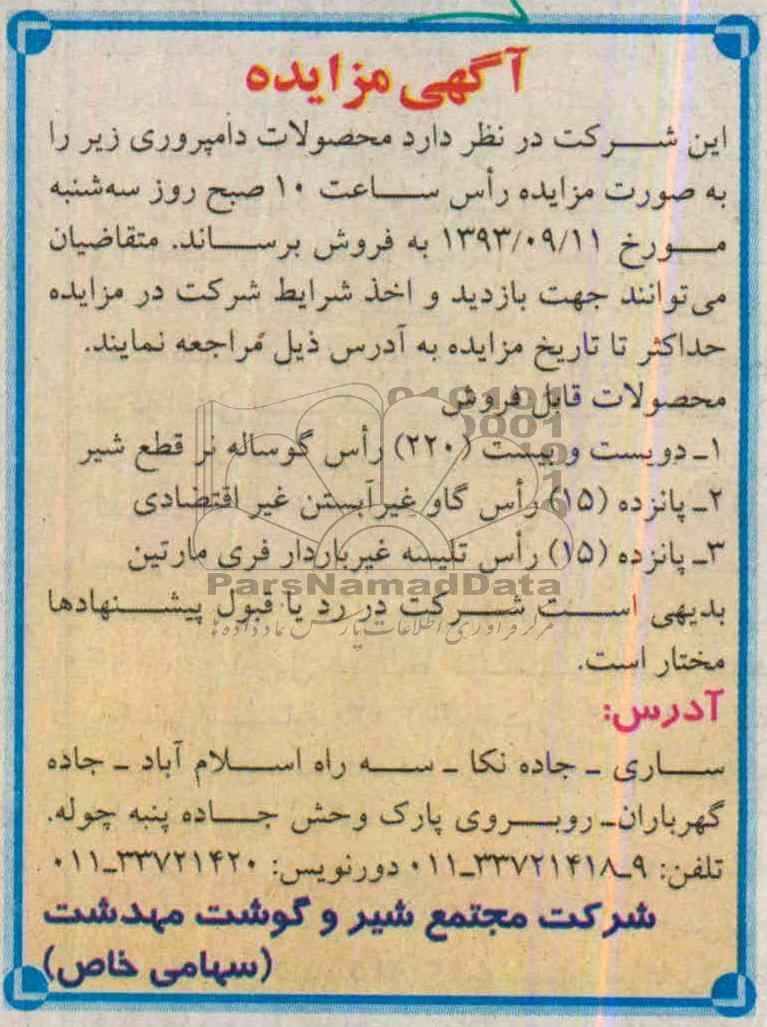 آگهی مزایده
این شرکت در نظر دارد محصولات دامپروری زیر را
به صورت مزایده رأس ساعت ۱۰ صبح روز سه‌شنبه
مورخ ۱۳۹۳/۰۹/۱۱ به فروش برساند. متقاضیان
می‌توانند جهت بازدید و اخذ شرایط شرکت در مزایده
حداکثر تا تاریخ مزایده به آدرس ذیل مراجعه نمایند.
محصولات قابل فروش
۱ـ دویست و بیست (۲۲۰) رأس گوساله نر قطع شیر
۲ـ پانزده (۱۵) رأس گاو غیرآبستن غیر اقتضادی
۳ـ پانزده (۱۵) رأس تلیسه غیرباردار فری مارتین
ParsNamadData
بدیهی است شرکت در رد یا قبول پیشنهادها
مرکز فرآوری اطلاعات پارس نماد داده ها
مختار است.
آدرس:
ساری ـ جاده نکا ـ سه راه اسلام آباد ـ جاده
گهرباران ـ روبروی پارک وحش جاده پنبه چوله.
تلفن: ۹ـ۳۳۷۲۱۴۱۸ـ۰۱۱ دورنویس: ۳۳۷۲۱۴۲۰ـ۰۱۱
شرکت مجتمع شیر و گوشت مهدشت
(سهامی خاص)